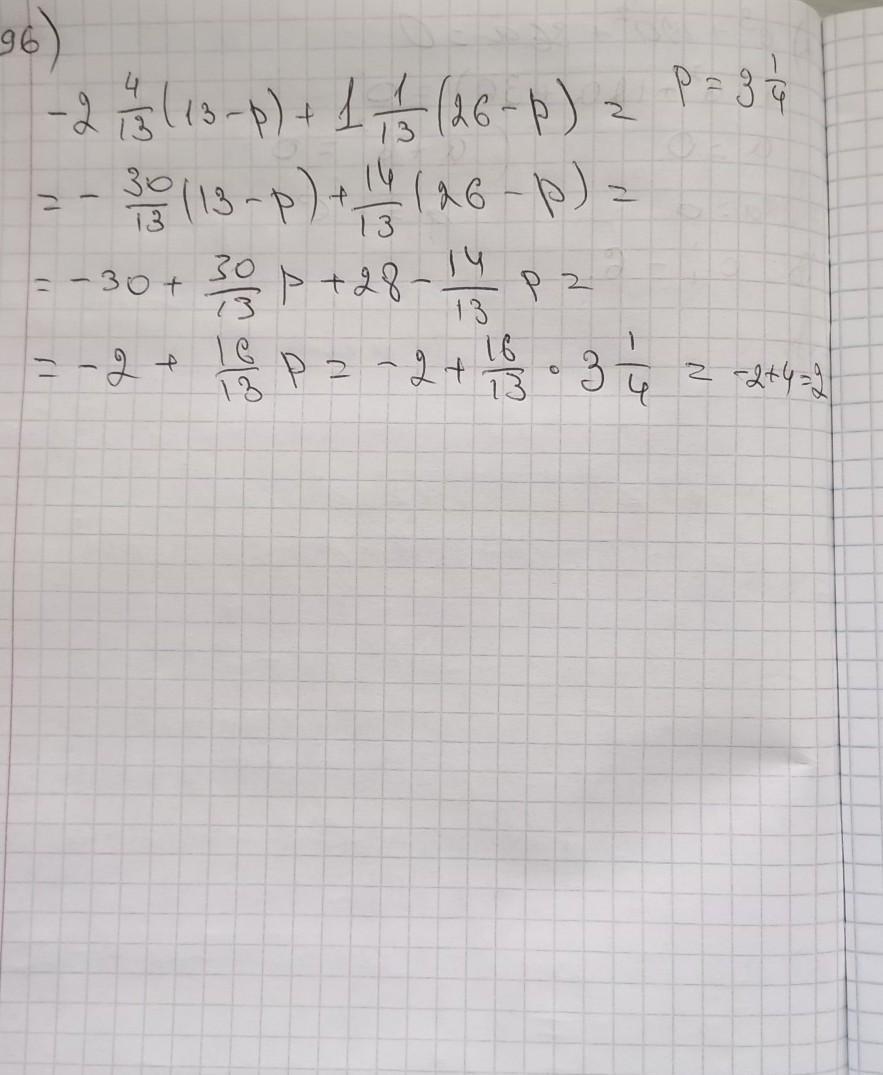 96)
-2 4/13 (13-p) + 1 1/13 (26-p) = p = 3 1/4
= - 30/13 (13-p) + 14/13 (26-p) =
= -30 + 30/13 p + 28 - 14/13 p =
= -2 + 16/13 p = -2 + 16/13 · 3 1/4 = -2+4=2